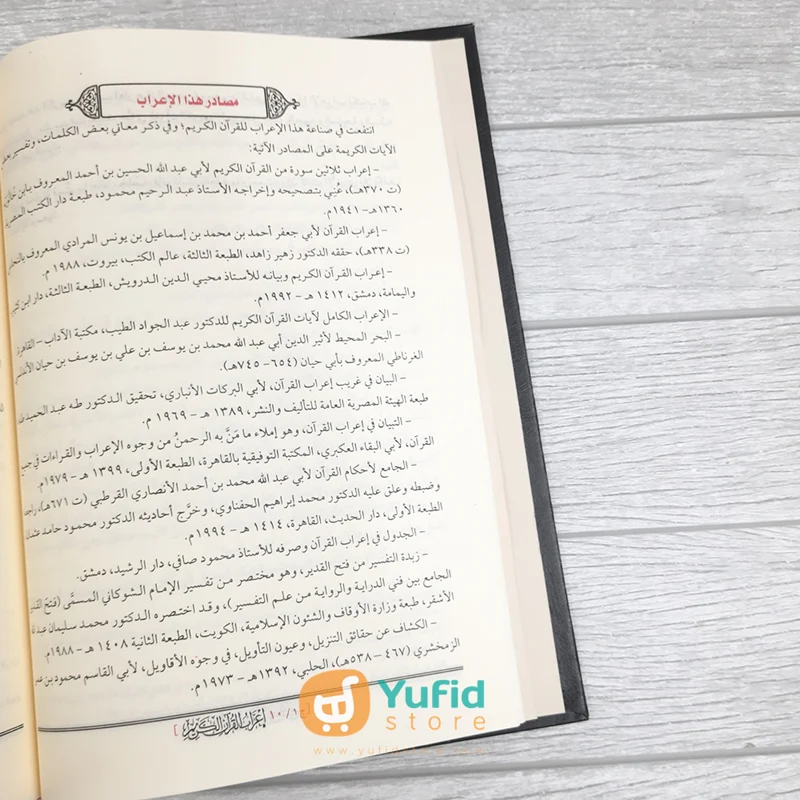 مصادر هذا الإعراب
انتفعت في صناعة هذا الإعراب للقرآن الكريم؛ وفي ذكر معاني بعض الكلمات، وتفسير بعض
الآيات الكريمة على المصادر الآتية:
– إعراب ثلاثين سورة من القرآن الكريم لأبي عبد الله الحسين بن أحمد المعروف بابن
(ت ٣٧٠هـ)، عُني بتصحيحه وإخراجه الأستاذ عبد الرحيم محمود، طبعة دار الكتب المصرية
١٣٦٠هـ – ١٩٤١م.
– إعراب القرآن لأبي جعفر أحمد بن محمد بن إسماعيل بن يونس المرادي المعروف
(ت ٣٣٨هـ)، حققه الدكتور زهير زاهد، الطبعة الثالثة، عالم الكتب، بيروت، ١٩٨٨ م.
– إعراب القرآن الكريم وبيانه للأستاذ محيي الدين الدرويش، الطبعة الثالثة، دار ابن
واليمامة، دمشق، ١٤١٢ هـ – ١٩٩٢م.
– الإعراب الكامل لآيات القرآن الكريم للدكتور عبد الجواد الطيب، مكتبة الآداب – القاهرة
– البحر المحيط لأثير الدين أبي عبد الله محمد بن يوسف بن علي بن يوسف بن حيان
الغرناطي المعروف بأبي حيان (٦٥٤ – ٧٤٥هـ).
– البيان في غريب إعراب القرآن، لأبي البركات الأنباري، تحقيق الدكتور طه عبد الحميد طه
طبعة الهيئة المصرية العامة للتأليف والنشر، ١٣٨٩ هـ – ١٩٦٩ م.
– التبيان في إعراب القرآن، وهو إملاء ما مَنَّ به الرحمنُ من وجوه الإعراب والقراءات في جميع
القرآن، لأبي البقاء العكبري، المكتبة التوفيقية بالقاهرة، الطبعة الأولى، ١٣٩٩ هـ – ١٩٧٩م.
– الجامع لأحكام القرآن لأبي عبد الله محمد بن أحمد الأنصاري القرطبي (ت ٦٧١هـ)،
وضبطه وعلق عليه الدكتور محمد إبراهيم الحفناوي، وخرَّج أحاديثه الدكتور محمود حامد عثمان
الطبعة الأولى، دار الحديث، القاهرة، ١٤١٤ هـ – ١٩٩٤م.
– الجدول في إعراب القرآن وصرفه للأستاذ محمود صافي، دار الرشيد، دمشق.
– زبدة التفسير من فتح القدير، وهو مختصر من تفسير الإمام الشوكاني المسمَّى (فتح القدير
الجامع بين فني الدراية والرواية من علم التفسير)، وقد اختصره الدكتور محمد سليمان عبد الله
الأشقر، طبعة وزارة الأوقاف والشئون الإسلامية، الكويت، الطبعة الثانية ١٤٠٨ هـ – ١٩٨٨م.
– الكشاف عن حقائق التنزيل، وعيون التأويل، في وجوه الأقاويل، لأبي القاسم محمود بن عمر
الزمخشري (٤٦٧ – ٥٣٨هـ)، الحلبي، ١٣٩٢ هـ – ١٩٧٣م.
إعراب القرآن الكريم
ج١/ ١٠
Yufid
store